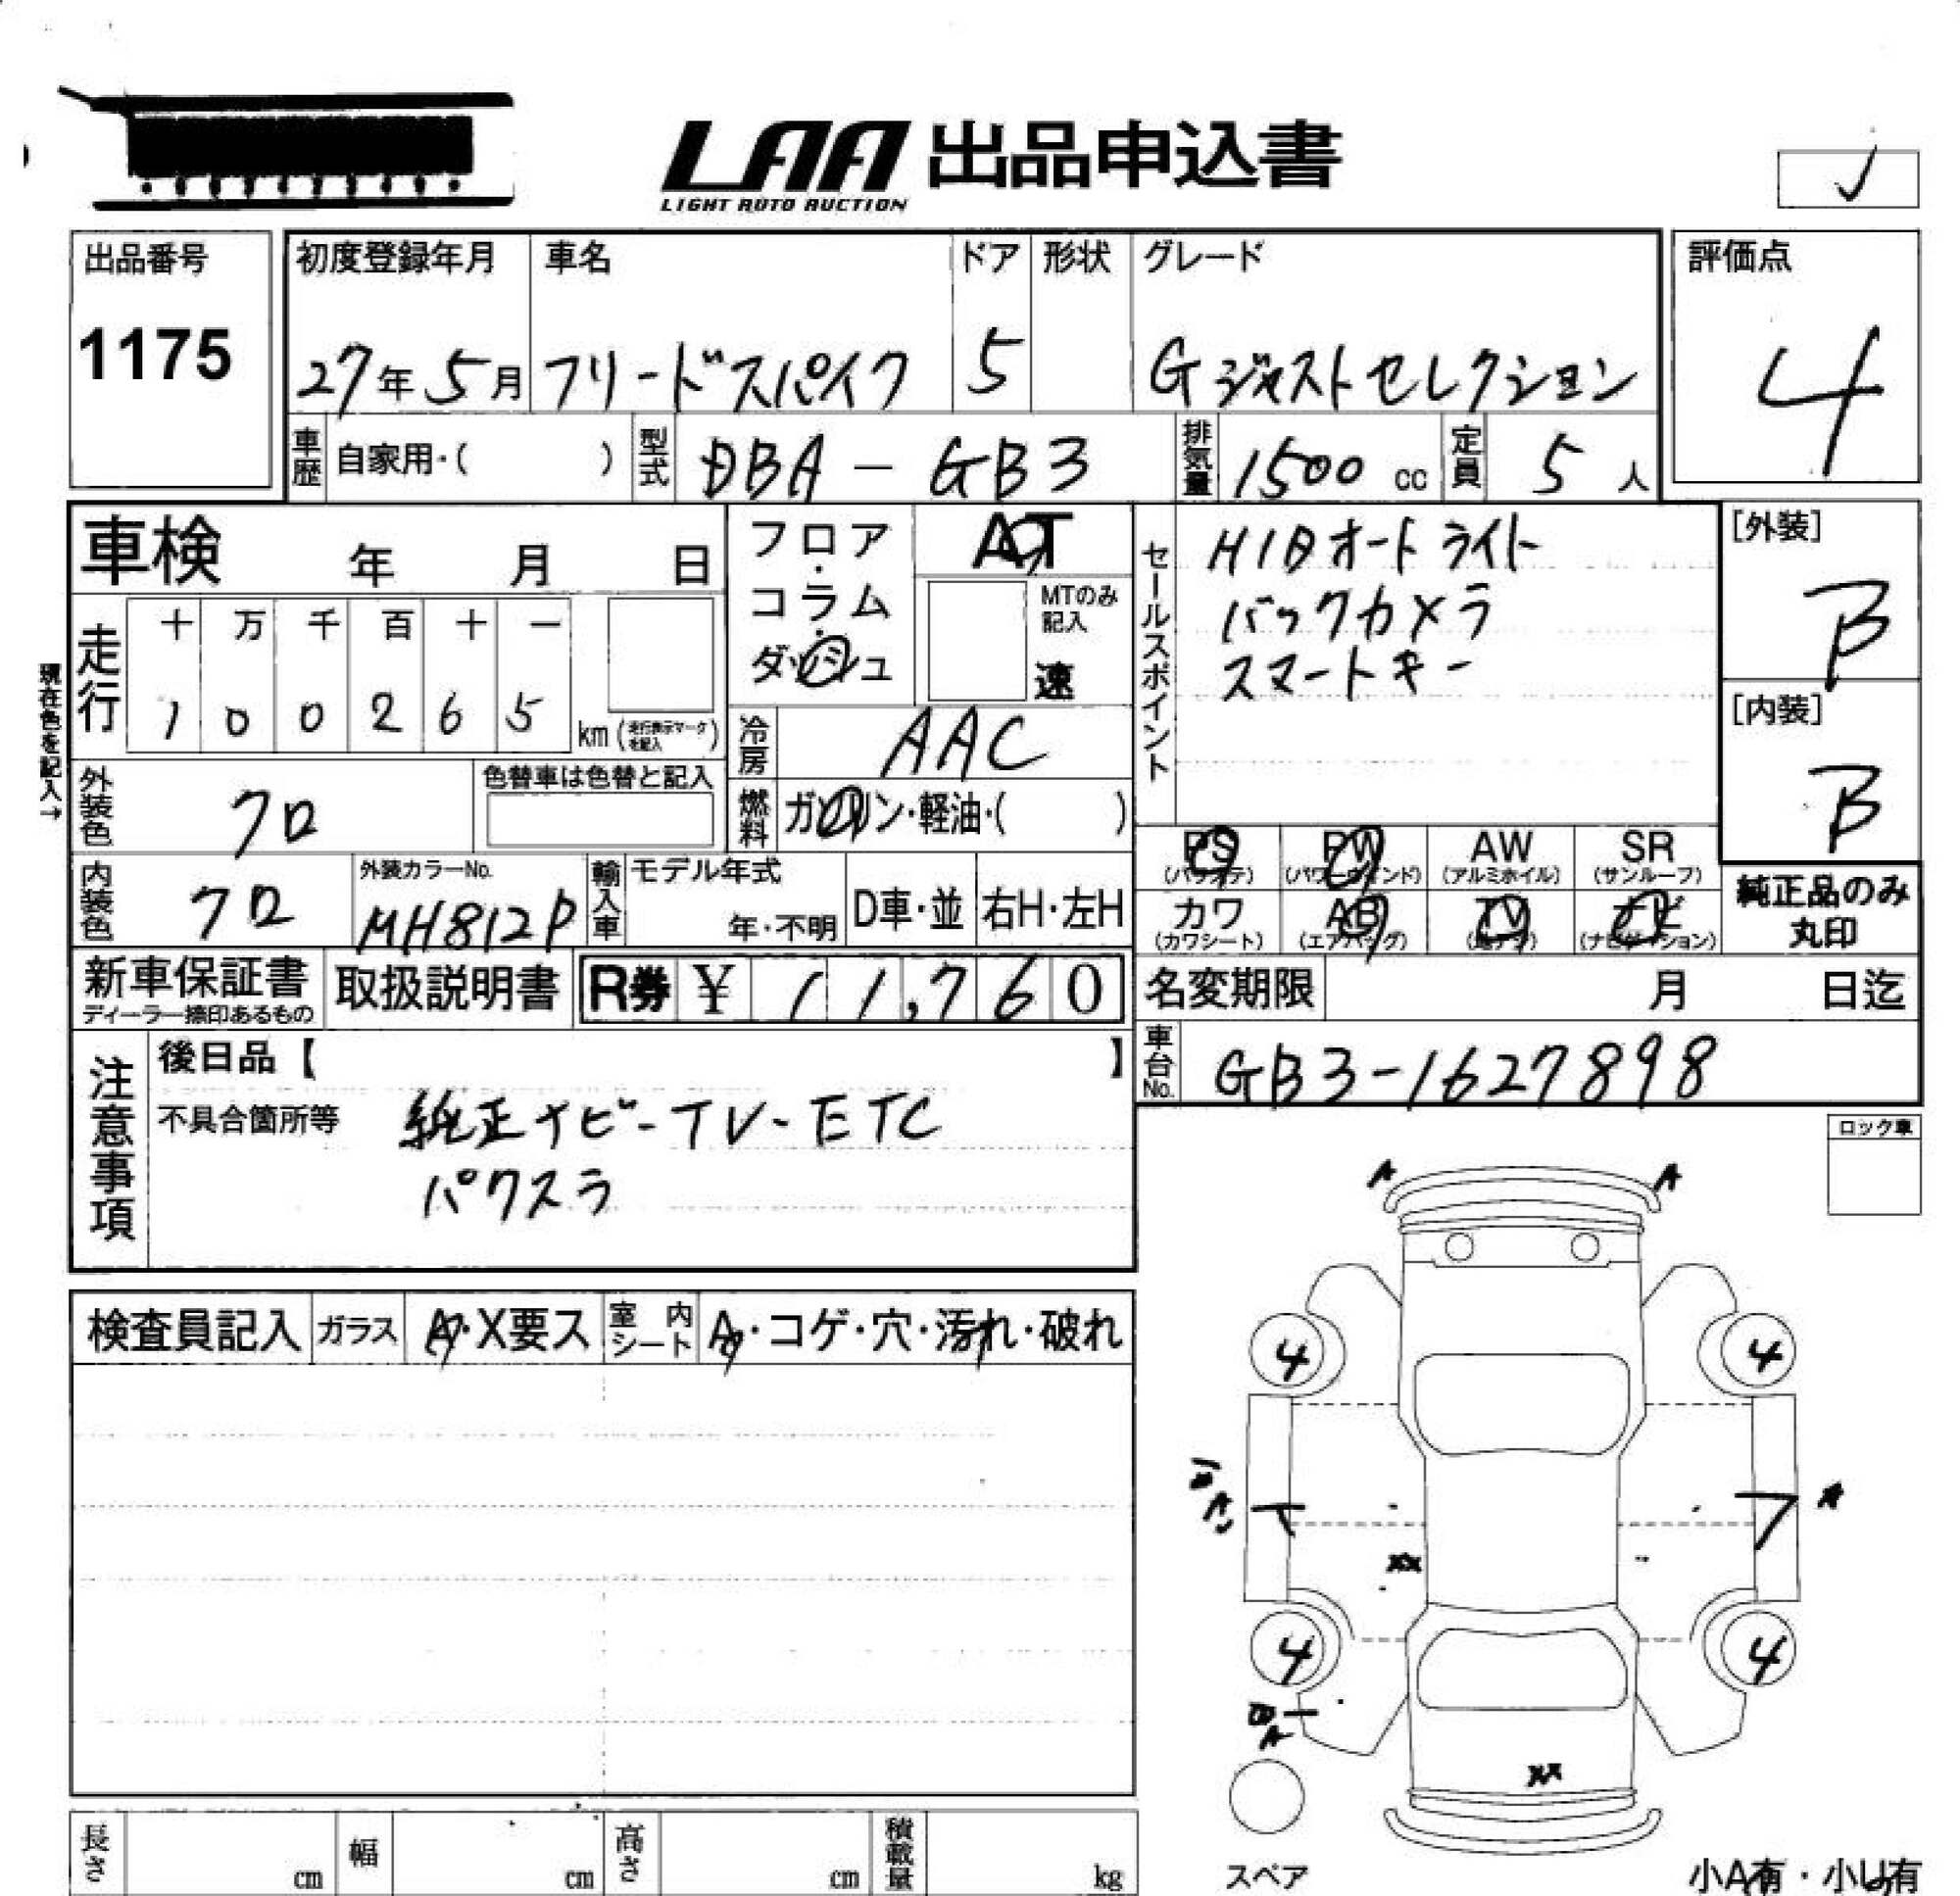 LAA 出品申込書
LIGHT AUTO AUCTION
出品番号
1175
初度登録年月 車名 ドア 形状 グレード
27年5月 フリードスパイク 5 Gジャストセレクション
評価点
4
車歴 自家用・( ) 型式 DBA-GB3 排気量 1500 cc 定員 5 人
車検 年 月 日
フロア・コラム・ダッシュ
AT
MTのみ記入
速
セールスポイント
HIDオートライト
バックカメラ
スマートキー
[外装]
B
[内装]
B
現在色を記入→
走行 十 万 千 百 十 一
1 0 0 2 6 5 km (走行表示マークを記入)
冷房 AAC
燃料 ガソリン・軽油・( )
外装色 クロ
色替車は色替と記入
内装色 クロ
外装カラーNo.
MH812P
輸入車 モデル年式
年・不明 D車・並 右H・左H
PS (パワステ) PW (パワーウインド) AW (アルミホイル) SR (サンルーフ)
カワ (カワシート) AB (エアバッグ) TV (地デジ) ナビ (ナビゲーション)
純正品のみ
丸印
新車保証書
ディーラー捺印あるもの
取扱説明書 R券 ¥ 11,760
名変期限 月 日迄
車台No. GB3-1627898
注意事項
後日品【 】
不具合箇所等 純正ナビ-TV-ETC
パワスラ
ロック車
A A
検査員記入 ガラス A・X要ス 室内シート A・コゲ・穴・汚れ・破れ
4 4
A A
XX
4 4
A
XX
スペア
長さ cm 幅 cm 高さ cm 積載量 kg
小A有・小U有